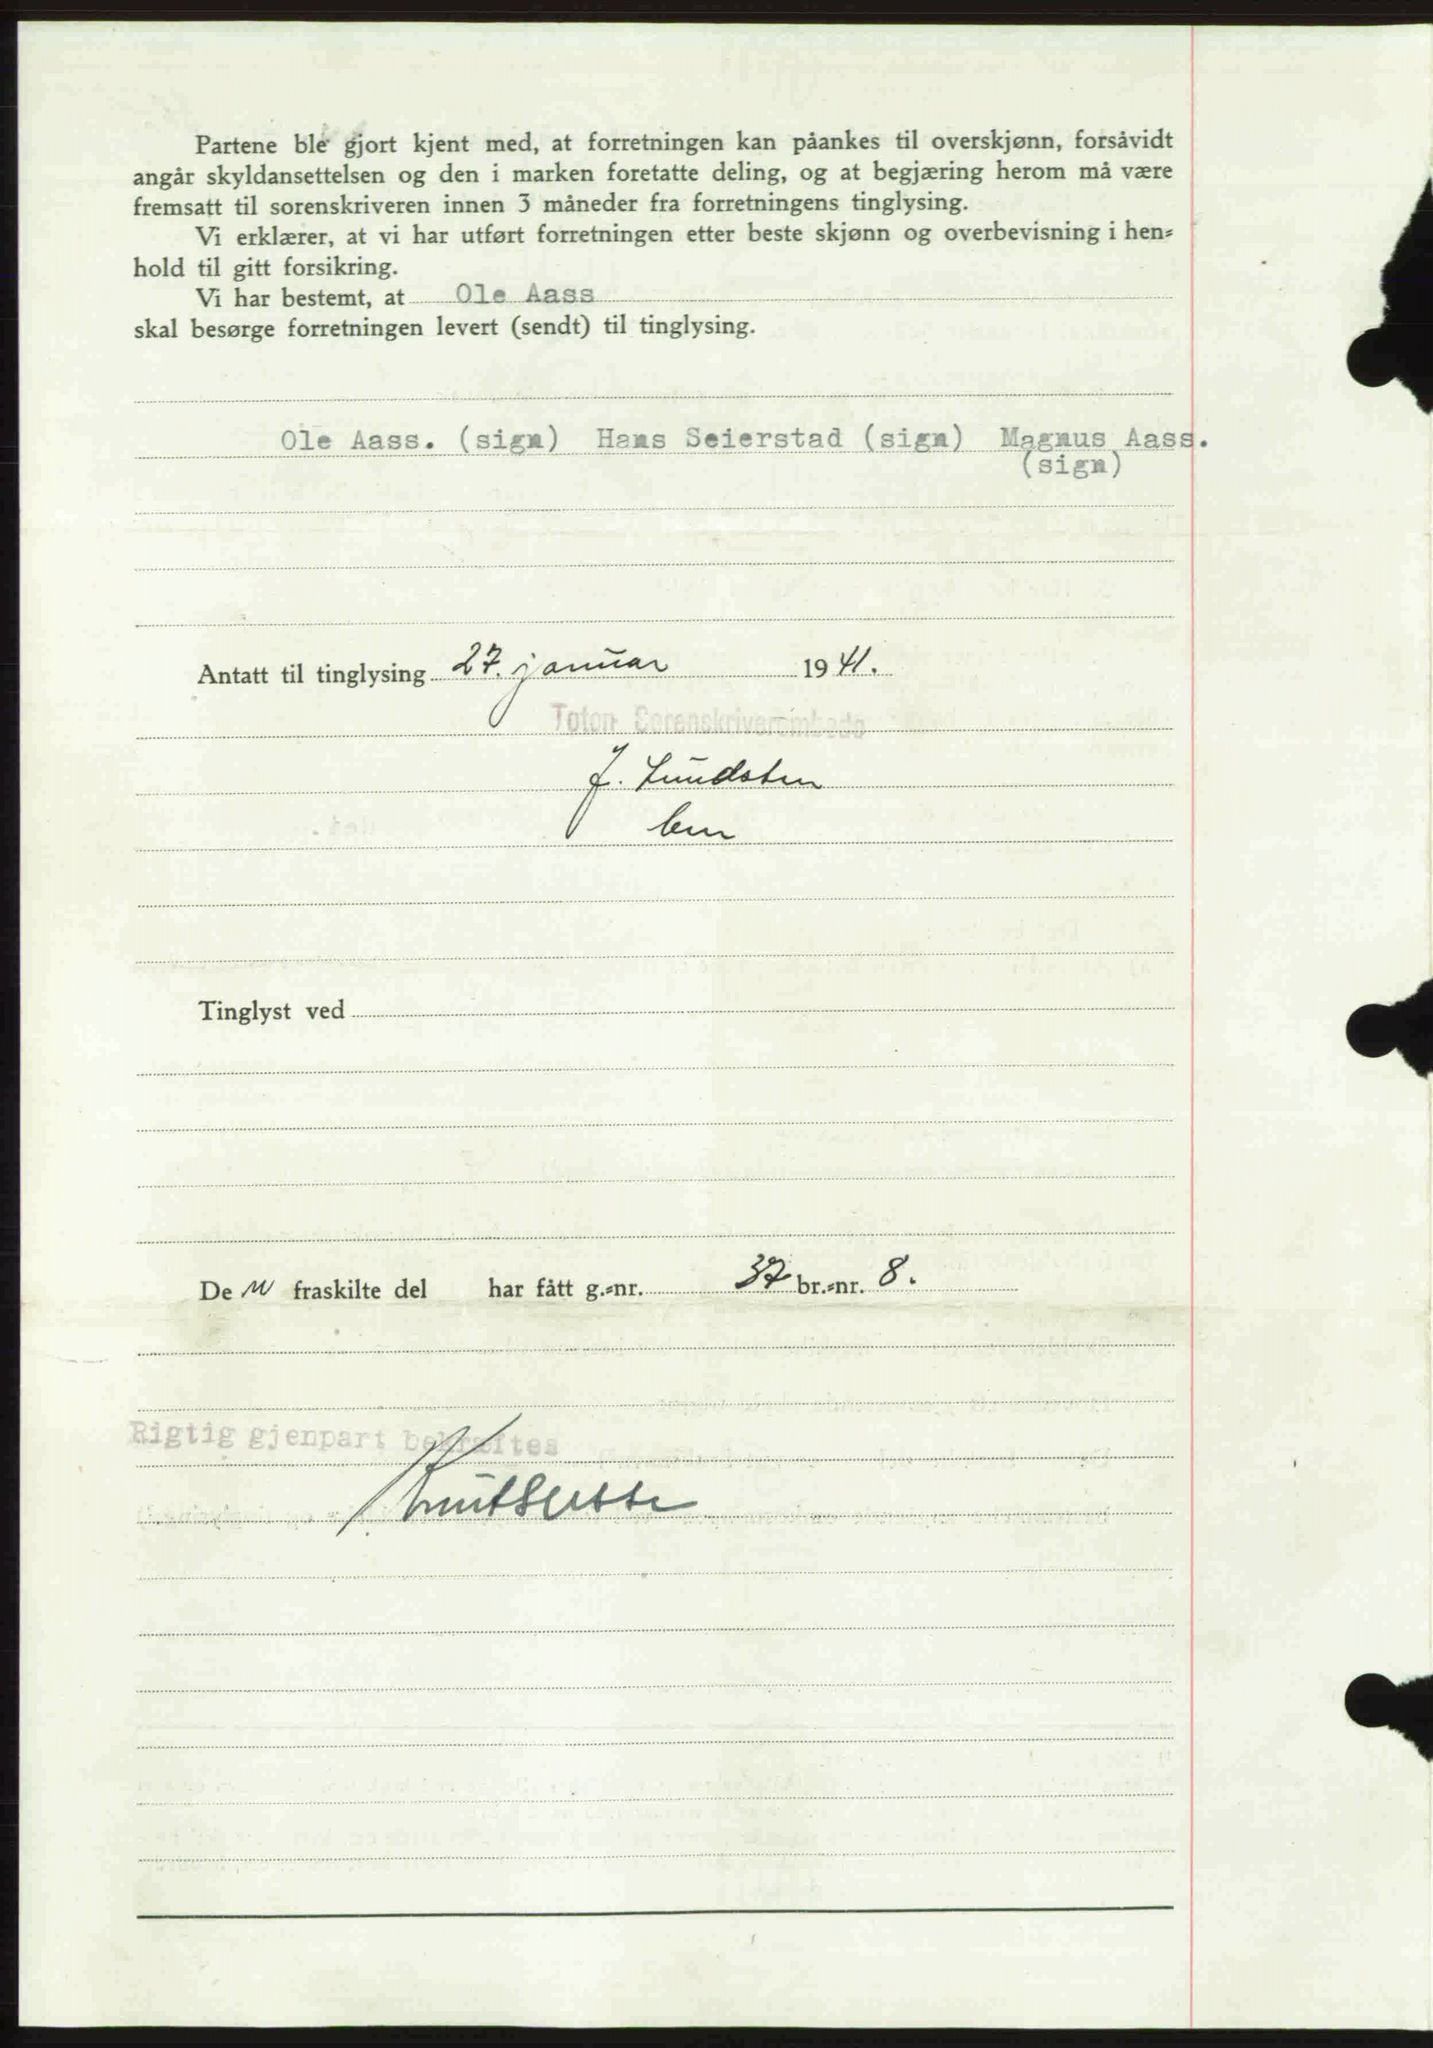 Partene ble gjort kjent med, at forretningen kan påankes til overskjønn, forsåvidt
angår skyldansettelsen og den i marken foretatte deling, og at begjæring herom må være
fremsatt til sorenskriveren innen 3 måneder fra forretningens tinglysing.
Vi erklærer, at vi har utført forretningen etter beste skjønn og overbevisning i hen=
hold til gitt forsikring.
Vi har bestemt, at Ole Aass
skal besørge forretningen levert (sendt) til tinglysing.
Ole Aass. (sign) Hans Seierstad (sign) Magnus Aass.
(sign)
Antatt til tinglysing 27. januar 1941.
Toten Sorenskriverembede
J. Lundsten
Tinglyst ved
De n fraskilte del har fått g.=nr. 37 br.=nr. 8.
Rigtig gjenpart bekræftes